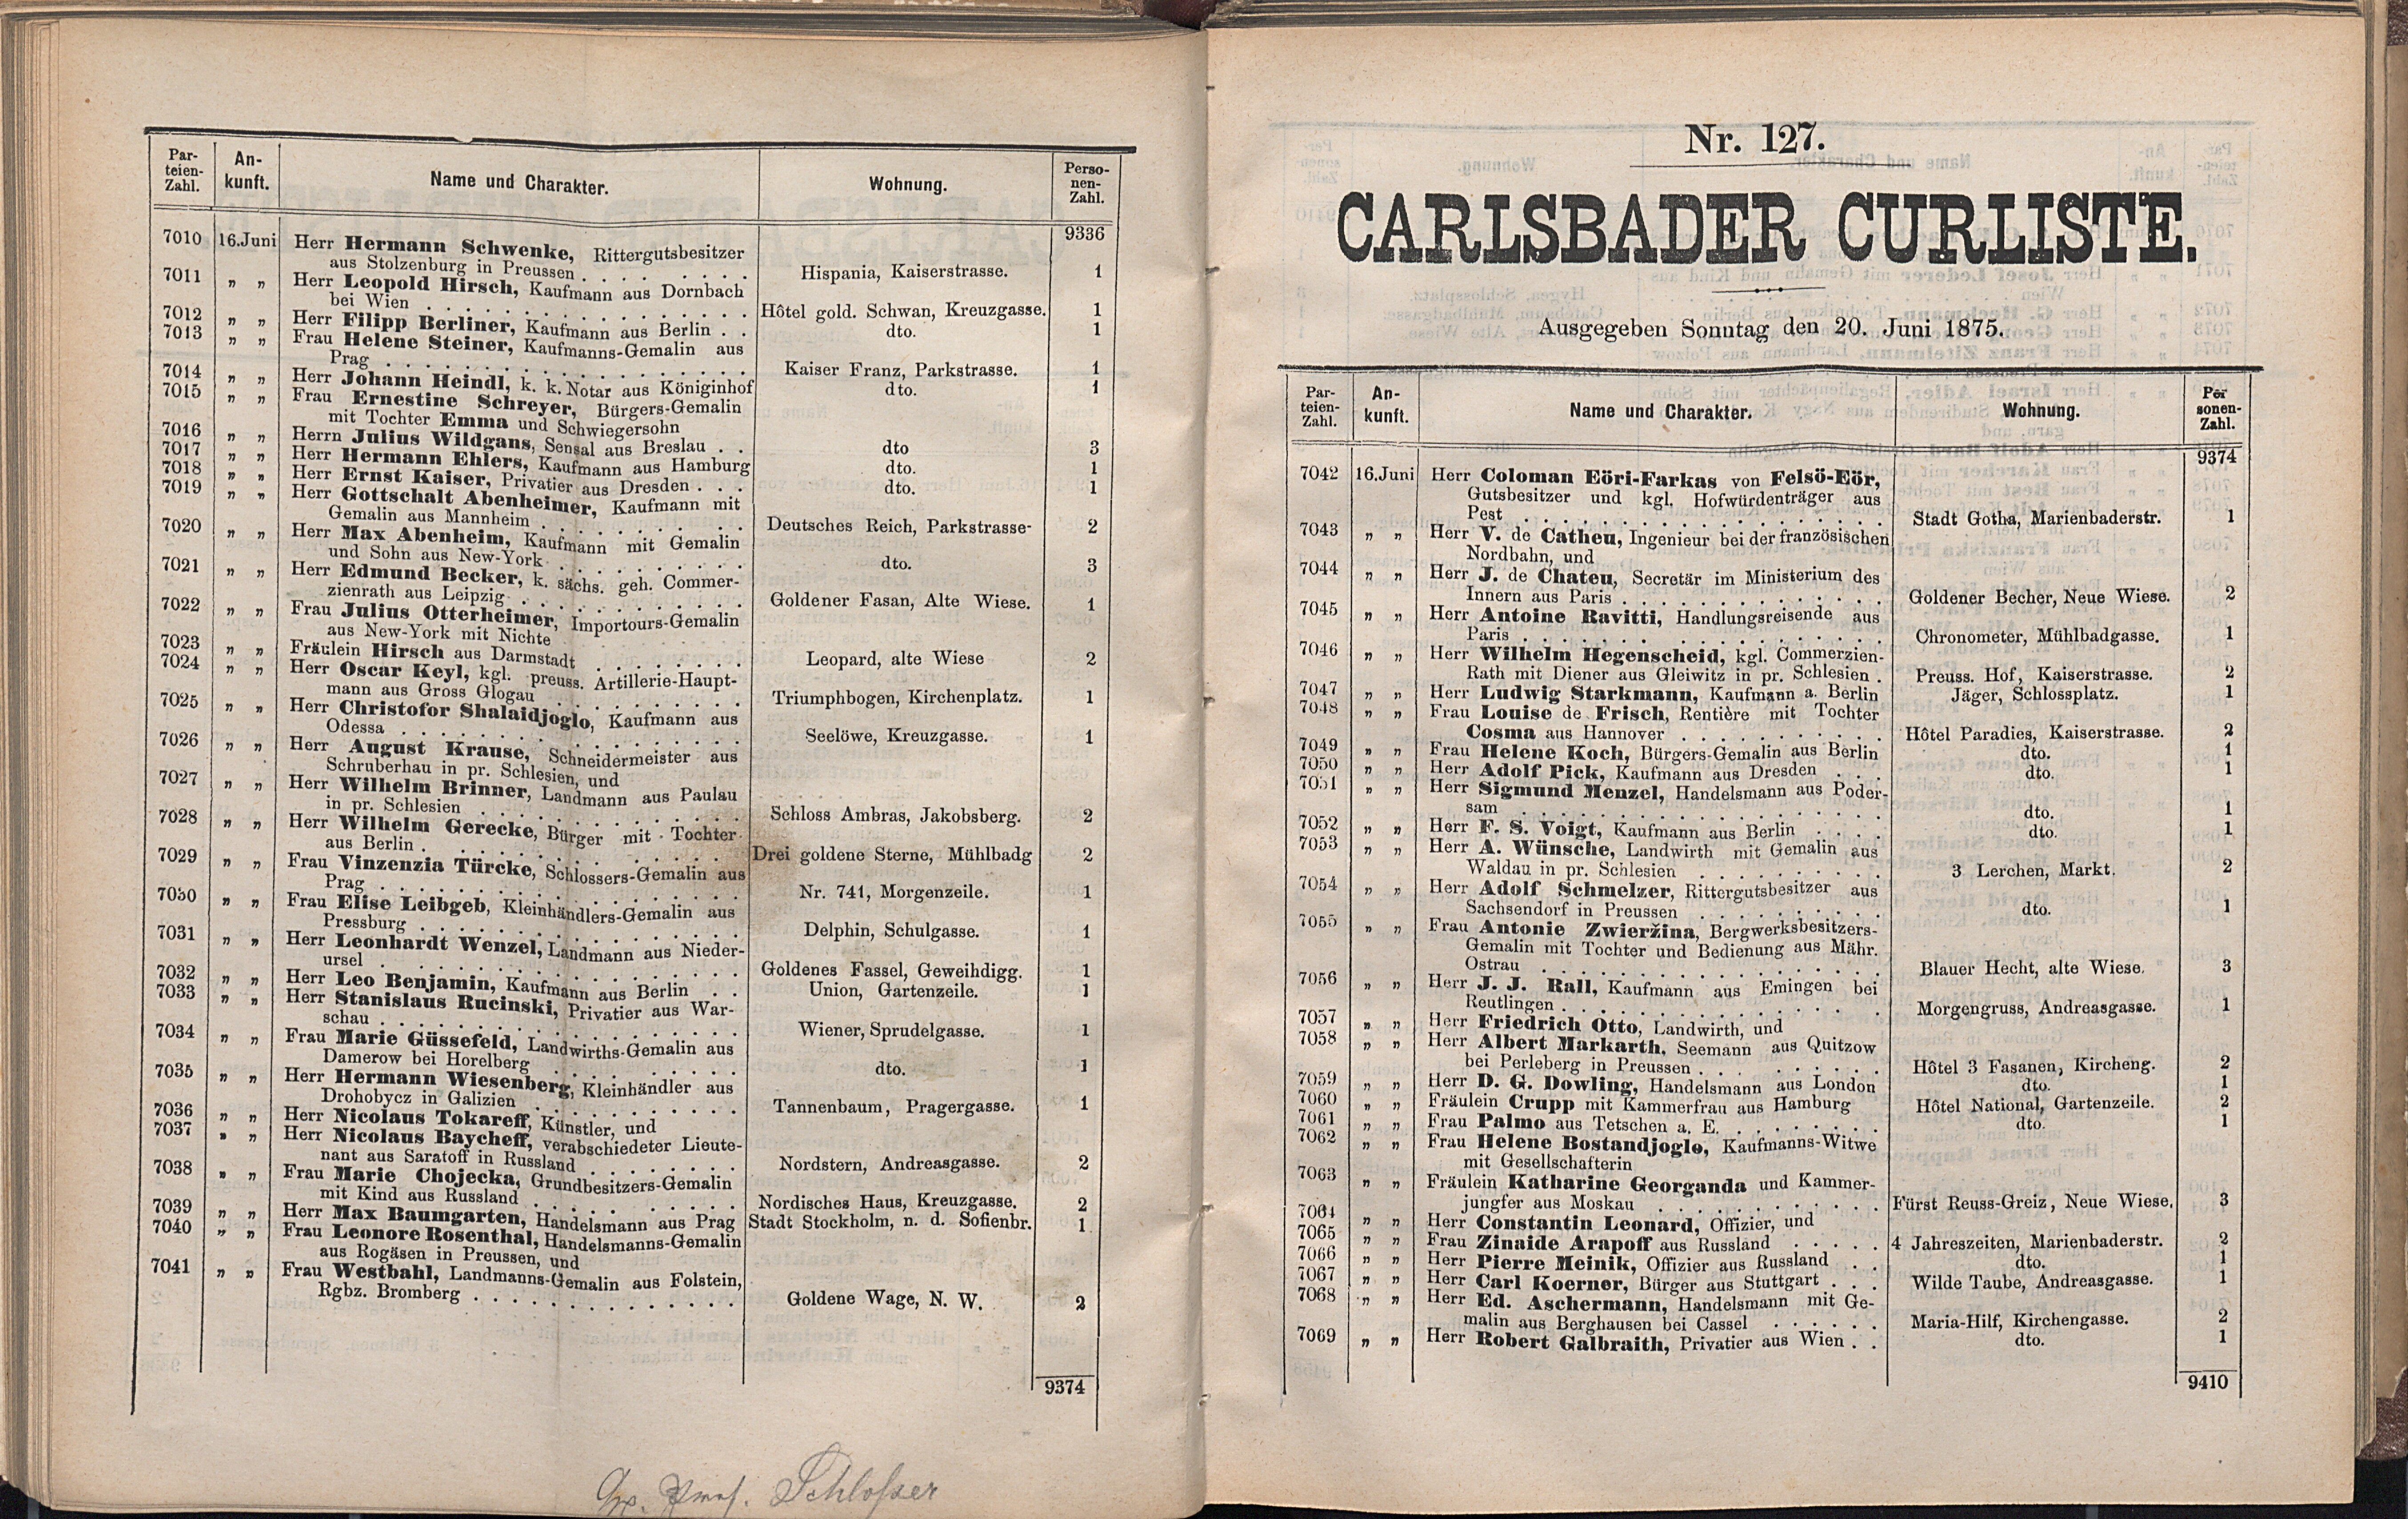 Par-teien-Zahl. An-kunft. Name und Charakter. Wohnung. Perso-nen-Zahl.
9336
7010 16.Juni Herr Hermann Schwenke, Rittergutsbesitzer
aus Stolzenburg in Preussen . . . . . . . Hispania, Kaiserstrasse. 1
7011 „ „ Herr Leopold Hirsch, Kaufmann aus Dornbach
bei Wien . . . . . . . . . . . . . . Hôtel gold. Schwan, Kreuzgasse. 1
7012 „ „ Herr Filipp Berliner, Kaufmann aus Berlin . . dto. 1
7013 „ „ Frau Helene Steiner, Kaufmanns-Gemalin aus
Prag . . . . . . . . . . . . . . . Kaiser Franz, Parkstrasse. 1
7014 „ „ Herr Johann Heindl, k. k. Notar aus Königinhof dto. 1
7015 „ „ Frau Ernestine Schreyer, Bürgers-Gemalin
mit Tochter Emma und Schwiegersohn
7016 „ „ Herrn Julius Wildgans, Sensal aus Breslau . . dto 3
7017 „ „ Herr Hermann Ehlers, Kaufmann aus Hamburg dto. 1
7018 „ „ Herr Ernst Kaiser, Privatier aus Dresden . . . dto. 1
7019 „ „ Herr Gottschalt Abenheimer, Kaufmann mit
Gemalin aus Mannheim . . . . . . . . . Deutsches Reich, Parkstrasse- 2
7020 „ „ Herr Max Abenheim, Kaufmann mit Gemalin
und Sohn aus New-York . . . . . . . . . dto. 3
7021 „ „ Herr Edmund Becker, k. sächs. geh. Commer-
zienrath aus Leipzig . . . . . . . . . . Goldener Fasan, Alte Wiese. 1
7022 „ „ Frau Julius Otterheimer, Importours-Gemalin
aus New-York mit Nichte
7023 „ „ Fräulein Hirsch aus Darmstadt . . . . . . . Leopard, alte Wiese 2
7024 „ „ Herr Oscar Keyl, kgl. preuss. Artillerie-Haupt-
mann aus Gross Glogau . . . . . . . . . Triumphbogen, Kirchenplatz. 1
7025 „ „ Herr Christofor Shalaidjoglo, Kaufmann aus
Odessa . . . . . . . . . . . . . . Seelöwe, Kreuzgasse. 1
7026 „ „ Herr August Krause, Schneidermeister aus
Schruberhau in pr. Schlesien, und
7027 „ „ Herr Wilhelm Brinner, Landmann aus Paulau
in pr. Schlesien . . . . . . . . . . . Schloss Ambras, Jakobsberg. 2
7028 „ „ Herr Wilhelm Gerecke, Bürger mit Tochter
aus Berlin . . . . . . . . . . . . . Drei goldene Sterne, Mühlbadg 2
7029 „ „ Frau Vinzenzia Türcke, Schlossers-Gemalin aus
Prag . . . . . . . . . . . . . . . Nr. 741, Morgenzeile. 1
7030 „ „ Frau Elise Leibgeb, Kleinhändlers-Gemalin aus
Pressburg . . . . . . . . . . . . . Delphin, Schulgasse. 1
7031 „ „ Herr Leonhardt Wenzel, Landmann aus Nieder-
ursel . . . . . . . . . . . . . . . Goldenes Fassel, Geweihdigg. 1
7032 „ „ Herr Leo Benjamin, Kaufmann aus Berlin . . Union, Gartenzeile. 1
7033 „ „ Herr Stanislaus Rucinski, Privatier aus War-
schau . . . . . . . . . . . . . . . Wiener, Sprudelgasse. 1
7034 „ „ Frau Marie Güssefeld, Landwirths-Gemalin aus
Damerow bei Horelberg . . . . . . . . . dto. 1
7035 „ „ Herr Hermann Wiesenberg, Kleinhändler aus
Drohobycz in Galizien . . . . . . . . . . Tannenbaum, Pragergasse. 1
7036 „ „ Herr Nicolaus Tokareff, Künstler, und
7037 „ „ Herr Nicolaus Baycheff, verabschiedeter Lieute-
nant aus Saratoff in Russland . . . . . . . Nordstern, Andreasgasse. 2
7038 „ „ Frau Marie Chojecka, Grundbesitzers-Gemalin
mit Kind aus Russland . . . . . . . . . Nordisches Haus, Kreuzgasse. 2
7039 „ „ Herr Max Baumgarten, Handelsmann aus Prag Stadt Stockholm, n. d. Sofienbr. 1
7040 „ „ Frau Leonore Rosenthal, Handelsmanns-Gemalin
aus Rogäsen in Preussen, und
7041 „ „ Frau Westbahl, Landmanns-Gemalin aus Folstein,
Rgbz. Bromberg . . . . . . . . . . . . Goldene Wage, N. W. 2
9374
Schlosser
Nr. 127.
CARLSBADER CURLISTE.
Ausgegeben Sonntag den 20. Juni 1875.
Par-teien-Zahl. An-kunft. Name und Charakter. Wohnung. Per sonen-Zahl.
9374
7042 16.Juni Herr Coloman Eöri-Farkas von Felsö-Eör,
Gutsbesitzer und kgl. Hofwürdenträger aus
Pest . . . . . . . . . . . . . . . Stadt Gotha, Marienbaderstr. 1
7043 „ „ Herr V. de Catheu, Ingenieur bei der französischen
Nordbahn, und
7044 „ „ Herr J. de Chateu, Secretär im Ministerium des
Innern aus Paris . . . . . . . . . . . Goldener Becher, Neue Wiese. 2
7045 „ „ Herr Antoine Ravitti, Handlungsreisende aus
Paris . . . . . . . . . . . . . . . Chronometer, Mühlbadgasse. 1
7046 „ „ Herr Wilhelm Hegenscheid, kgl. Commerzien-
Rath mit Diener aus Gleiwitz in pr. Schlesien . Preuss. Hof, Kaiserstrasse. 2
7047 „ „ Herr Ludwig Starkmann, Kaufmann a. Berlin Jäger, Schlossplatz. 1
7048 „ „ Frau Louise de Frisch, Rentière mit Tochter
Cosma aus Hannover . . . . . . . . . . Hôtel Paradies, Kaiserstrasse. 2
7049 „ „ Frau Helene Koch, Bürgers-Gemalin aus Berlin dto. 1
7050 „ „ Herr Adolf Pick, Kaufmann aus Dresden . . . dto. 1
7051 „ „ Herr Sigmund Menzel, Handelsmann aus Poder-
sam . . . . . . . . . . . . . . . dto. 1
7052 „ „ Herr F. S. Voigt, Kaufmann aus Berlin . . . . dto. 1
7053 „ „ Herr A. Wünsche, Landwirth mit Gemalin aus
Waldau in pr. Schlesien . . . . . . . . . 3 Lerchen, Markt. 2
7054 „ „ Herr Adolf Schmelzer, Rittergutsbesitzer aus
Sachsendorf in Preussen . . . . . . . . . dto. 1
7055 „ „ Frau Antonie Zwieržina, Bergwerksbesitzers-
Gemalin mit Tochter und Bedienung aus Mähr.
Ostrau . . . . . . . . . . . . . . Blauer Hecht, alte Wiese. 3
7056 „ „ Herr J. J. Rall, Kaufmann aus Emingen bei
Reutlingen . . . . . . . . . . . . . Morgengruss, Andreasgasse. 1
7057 „ „ Herr Friedrich Otto, Landwirth, und
7058 „ „ Herr Albert Markarth, Seemann aus Quitzow
bei Perleberg in Preussen . . . . . . . . . Hôtel 3 Fasanen, Kircheng. 2
7059 „ „ Herr D. G. Dowling, Handelsmann aus London dto. 1
7060 „ „ Fräulein Crupp mit Kammerfrau aus Hamburg Hôtel National, Gartenzeile. 2
7061 „ „ Frau Palmo aus Tetschen a. E. . . . . . . . dto. 1
7062 „ „ Frau Helene Bostandjoglo, Kaufmanns-Witwe
mit Gesellschafterin
7063 „ „ Fräulein Katharine Georganda und Kammer-
jungfer aus Moskau . . . . . . . . . . . Fürst Reuss-Greiz, Neue Wiese. 3
7064 „ „ Herr Constantin Leonard, Offizier, und
7065 „ „ Frau Zinaide Arapoff aus Russland . . . . . 4 Jahreszeiten, Marienbaderstr. 2
7066 „ „ Herr Pierre Meinik, Offizier aus Russland . . dto. 1
7067 „ „ Herr Carl Koerner, Bürger aus Stuttgart . . . Wilde Taube, Andreasgasse. 1
7068 „ „ Herr Ed. Aschermann, Handelsmann mit Ge-
malin aus Berghausen bei Cassel . . . . . . Maria-Hilf, Kirchengasse. 2
7069 „ „ Herr Robert Galbraith, Privatier aus Wien . . dto. 1
9410